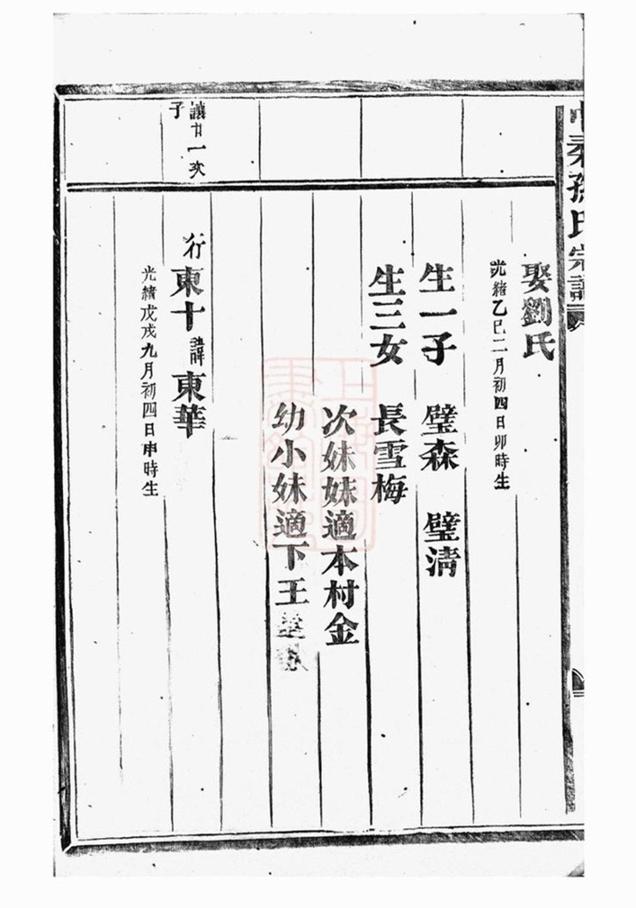 孫氏宗譜
娶劉氏
光緒乙巳二月初四日卯時生
生一子 璧森 璧清
生三女 長雪梅
次妹妹適本村金
幼小妹適下王
讓廿一次
子
行東十諱東華
光緒戊戌九月初四日申時生